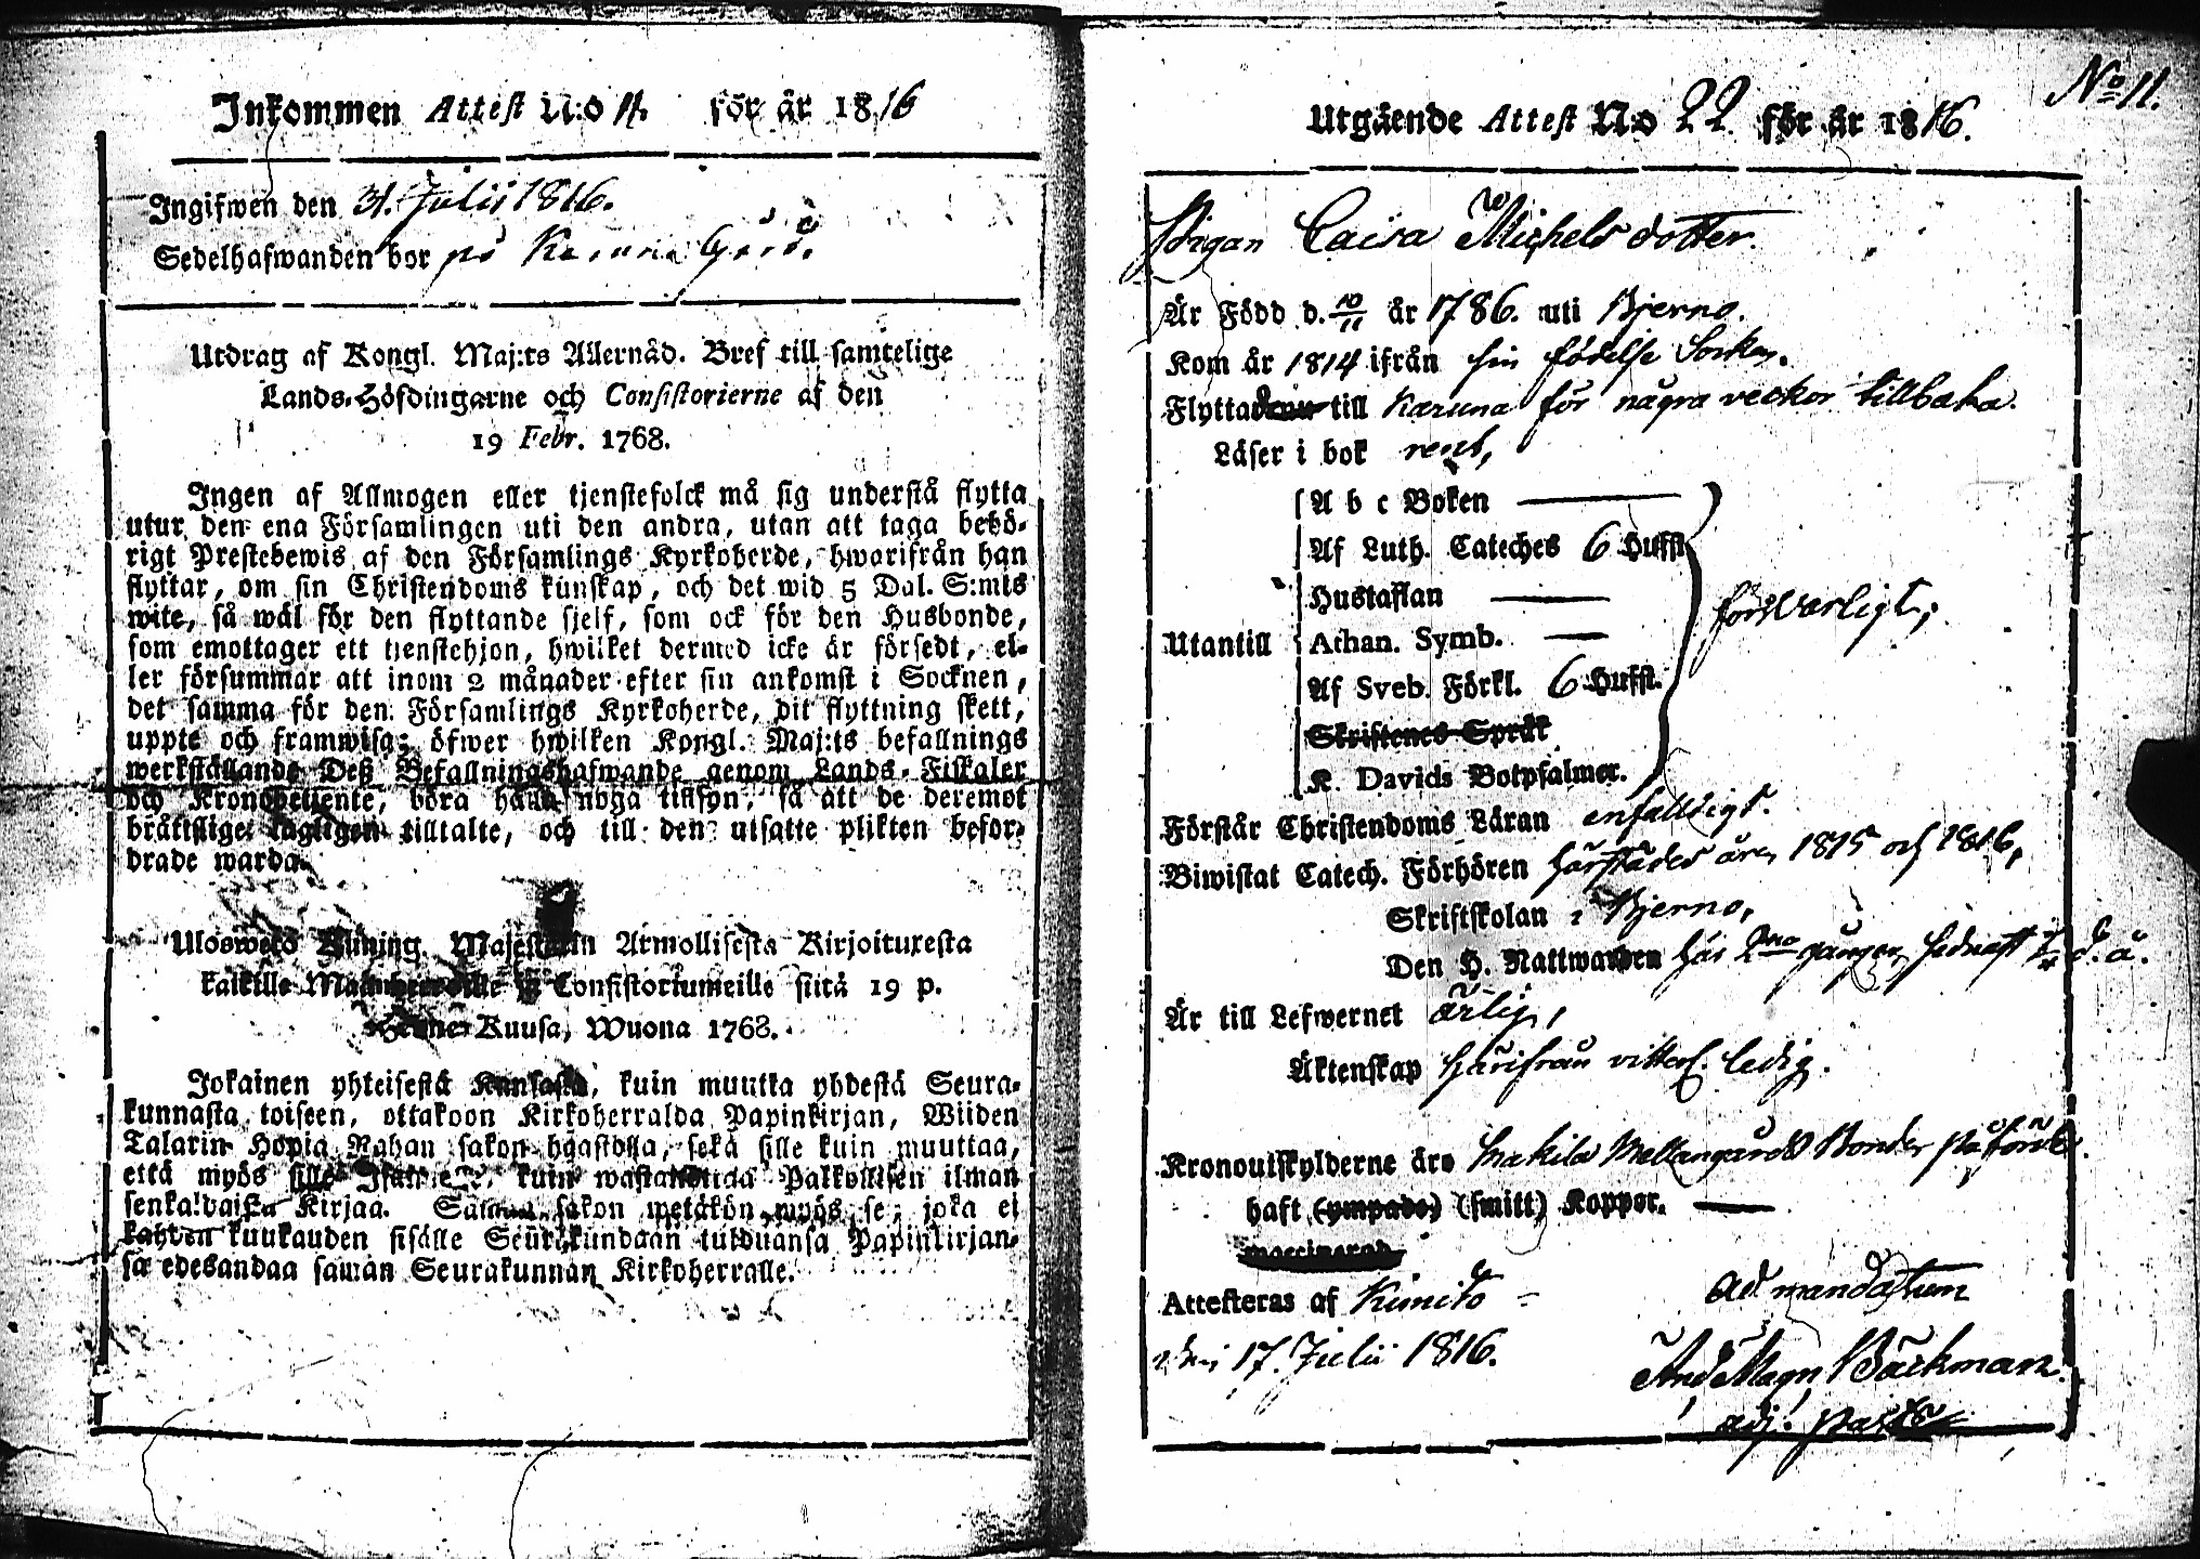 Inkommen Attest N:o 11. för år 1816
Ingifwen den 31. Julii 1816.
Sedelhafwanden bor på Karuna Gård.
Utdrag af Kongl. Maj:ts Allernåd. Bref till samtelige
Lands-Höfdingarne och Consistorierne af den
19 Febr. 1768.
Ingen af Allmogen eller tjenstefolck må sig understå flytta
utur den ena Församlingen uti den andra, utan att taga behö-
rigt Prestebewis af den Församlings Kyrkoherde, hwarifrån han
flyttar, om sin Christendoms kunskap, och det wid 5 Dal. S:mts
wite, så wäl för den flyttande sjelf, som ock för den Husbonde,
som emottager ett tjenstehjon, hwilket dermed icke är försedt, el-
ler försummar att inom 2 månader efter sin ankomst i Socknen,
det samma för den Församlings Kyrkoherde, dit flyttning skett,
uppte och framwisa; öfwer hwilken Kongl. Maj:ts befallnings
werkställande Deß Befallningshafwande genom Lands-Fiskaler
och Kronobetjente, böra hafwa noga tillsyn, så att de deremot
bråttslige lagligen tilltalte, och till den utsatte plikten befor-
drade warda.
Ulosweto Kuning. Majestetin Armollisesta Kirjoituxesta
kaikille Maanherroille ja Consistoriumeille siitä 19 p.
Helme-Kuusa, Wuona 1768.
Jokainen yhteisestä Kansasta, kuin muutta yhdestä Seura-
kunnasta toiseen, ottakoon Kirkoherralda Papinkirjan, Wiiden
Talarin Hopia Rahan sakon haastolla, sekä sille kuin muuttaa,
että myös sille Isännelle, kuin wastanottaa Palkollisen ilman
senkalbaista Kirjaa. Saman sakon wetäkön myös se, joka ei
kahden kuukauden sisälle Seurakundaan tulduansa Papinkirjan-
sa edesandaa saman Seurakunnan Kirkoherralle.
No 11.
Utgående Attest No 22 för år 1816.
Pigan Caisa Michelsdotter.
Är Född d. 10/11 år 1786. uti Bjerno.
Kom år 1814 ifrån sin födelse Socken.
Flyttade till Karuna för några veckor tillbaka.
Läser i bok rent,
A b c Boken
Af Luth. Cateches 6 Hufst
Hustaflan
Utantill
Athan. Symb.
försvarligt;
Af Sveb. Förkl. 6 Hufst.
Skriftenes Språk
K. Davids Botpsalmer.
Förstår Christendoms Läran enfalldigt.
Biwistat Catech. Förhören härstädes åren 1815 och 1816,
Skriftskolan i Bjerno,
Den H. Nattwarden här 2ne gånger, sednast d. å.
Är till Lefwernet ärlig,
Äktenskap härifrån vitterl. ledig.
Kronoutskylderne äro Makila Mellangårds Bonde påförde.
haft (ympade) (smitt) Koppor.
vaccinerad
Attesteras af Kimito
den 17. Julii 1816.
Ad mandatum
And. Magn. Bäckman.
adj. past.